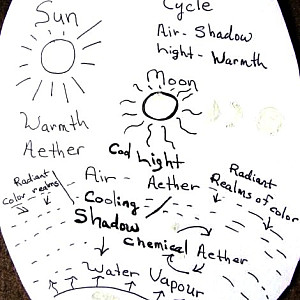 Sun
Cycle
Air - Shadow
Light - Warmth
Moon
Warmth
Aether
Cool Light
Radiant
Color realms
Air -
Aether
Radiant
Realms of Color
Cooling
Shadow
Chemical Aether
Water Vapour